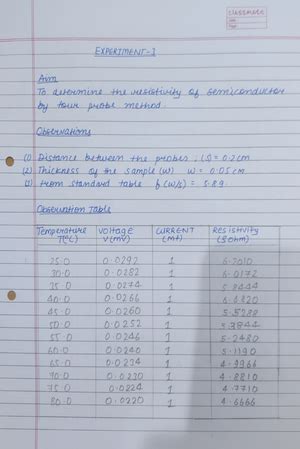 classmate
Date
Page
EXPERIMENT-1
Aim
To determine the resistivity of semiconductor
by four probe method.
Observations
(1) Distance between the probes, (S) = 0.2 cm
(2) Thickness of the sample (w) w = 0.05 cm
(3) From standard table f(w/s) = 5.89.
Observation Table
Temperature VOLTAGE CURRENT RESISTIVITY
T(°C) V(mV) (mA) (Ω ohm)
25.0 0.0292 1 6.2010
30.0 0.0282 1 6.0172
35.0 0.0274 1 5.8444
40.0 0.0266 1 5.6820
45.0 0.0260 1 5.5288
50.0 0.0252 1 5.3844
55.0 0.0246 1 5.2480
60.0 0.0240 1 5.1190
65.0 0.0234 1 4.9966
70.0 0.0230 1 4.8810
75.0 0.0224 1 4.7710
80.0 0.0220 1 4.6666